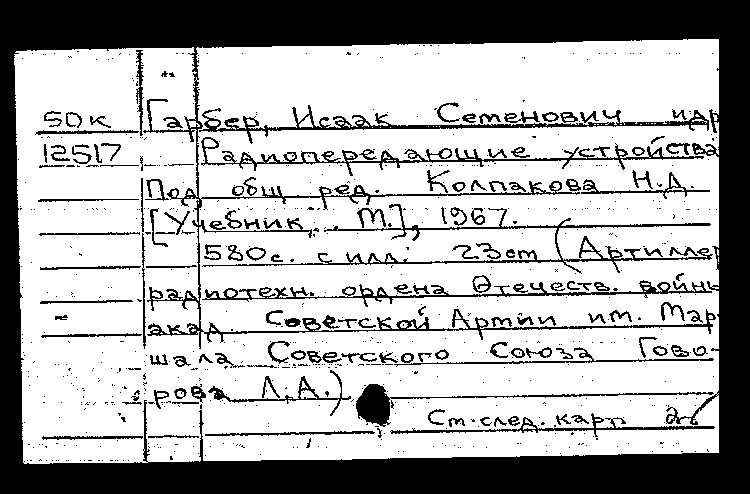 50к Гарбер, Исаак Семенович и др
12517 Радиопередающие устройства
Под общ ред. Колпакова Н.Д.
[Учебник. М.], 1967.
580с. с илл. 23см (Артиллер
радиотехн. ордена Отечеств. войны
акад. Советской Армии им. Мар-
шала Советского Союза Гово-
рова Л.А.)
См. след. карт